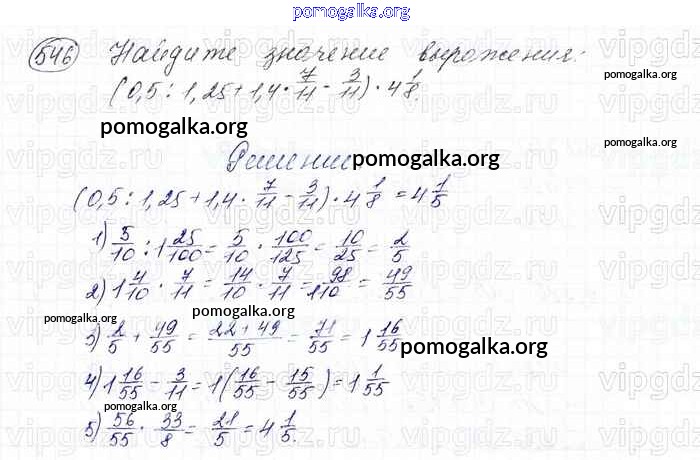 pomogalka.org
546 Найдите значение выражения:
(0,5 : 1,25 + 1,4 · 7/11 - 3/11) · 4 1/8.
pomogalka.org
Решение
pomogalka.org
(0,5 : 1,25 + 1,4 · 7/11 - 3/11) · 4 1/8 = 4 1/5
1) 5/10 : 1 25/100 = 5/10 · 100/125 = 10/25 = 2/5
2) 1 4/10 · 7/11 = 14/10 · 7/11 = 98/110 = 49/55
pomogalka.org
pomogalka.org
3) 2/5 + 49/55 = 22+49/55 = 71/55 = 1 16/55
pomogalka.org
4) 1 16/55 - 3/11 = 1(16/55 - 15/55) = 1 1/55
pomogalka.org
5) 56/55 · 33/8 = 21/5 = 4 1/5.
vipgdz.ru